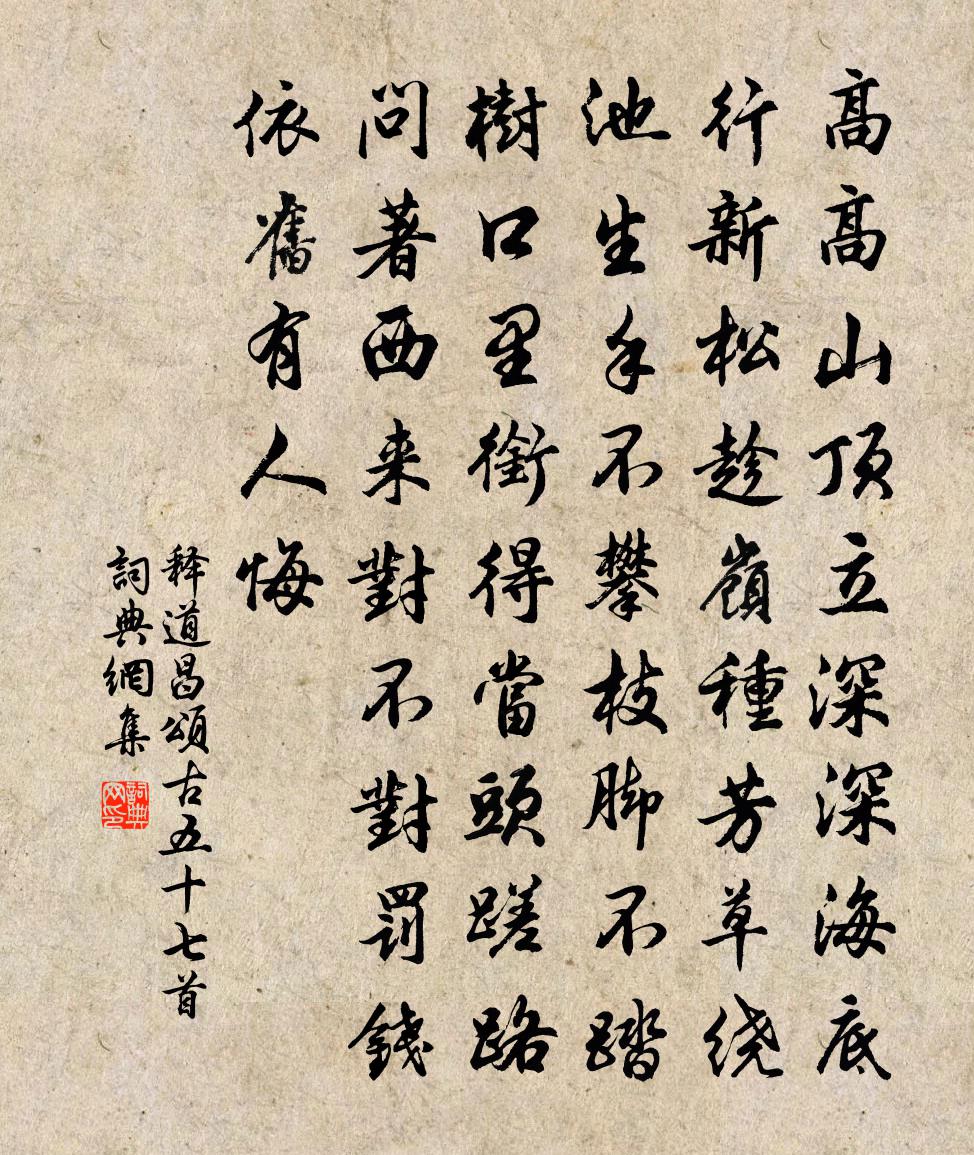 高高山頂立深深海底
行新松趁嶺種芳草繞
池生手不攀枝脚不踏
樹口里銜得當頭蹉路
問著西来對不對罰錢
依舊有人悔
释道昌頌古五十七首
詞典網集
詞典
网印